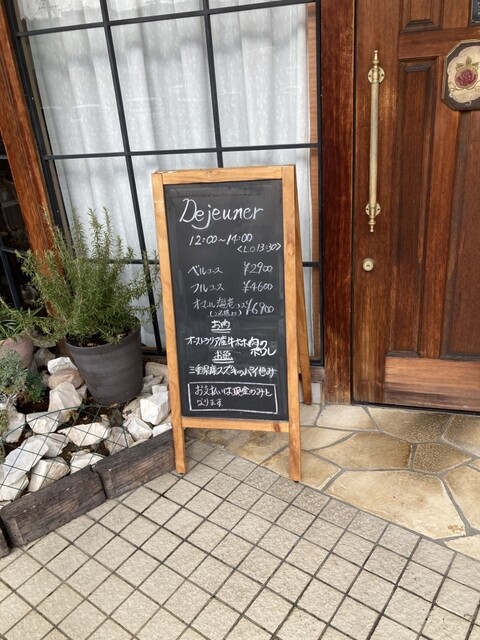 Dejeuner
12:00~14:00
<L.O 13:30>
ベルコース ¥2900
フルコース ¥4600
オマール海老コース ¥6,900
お肉
オーストラリア産牛ホホ肉の
お魚
三重県産スズキのパイ包み
お支払いは現金のみと
なります